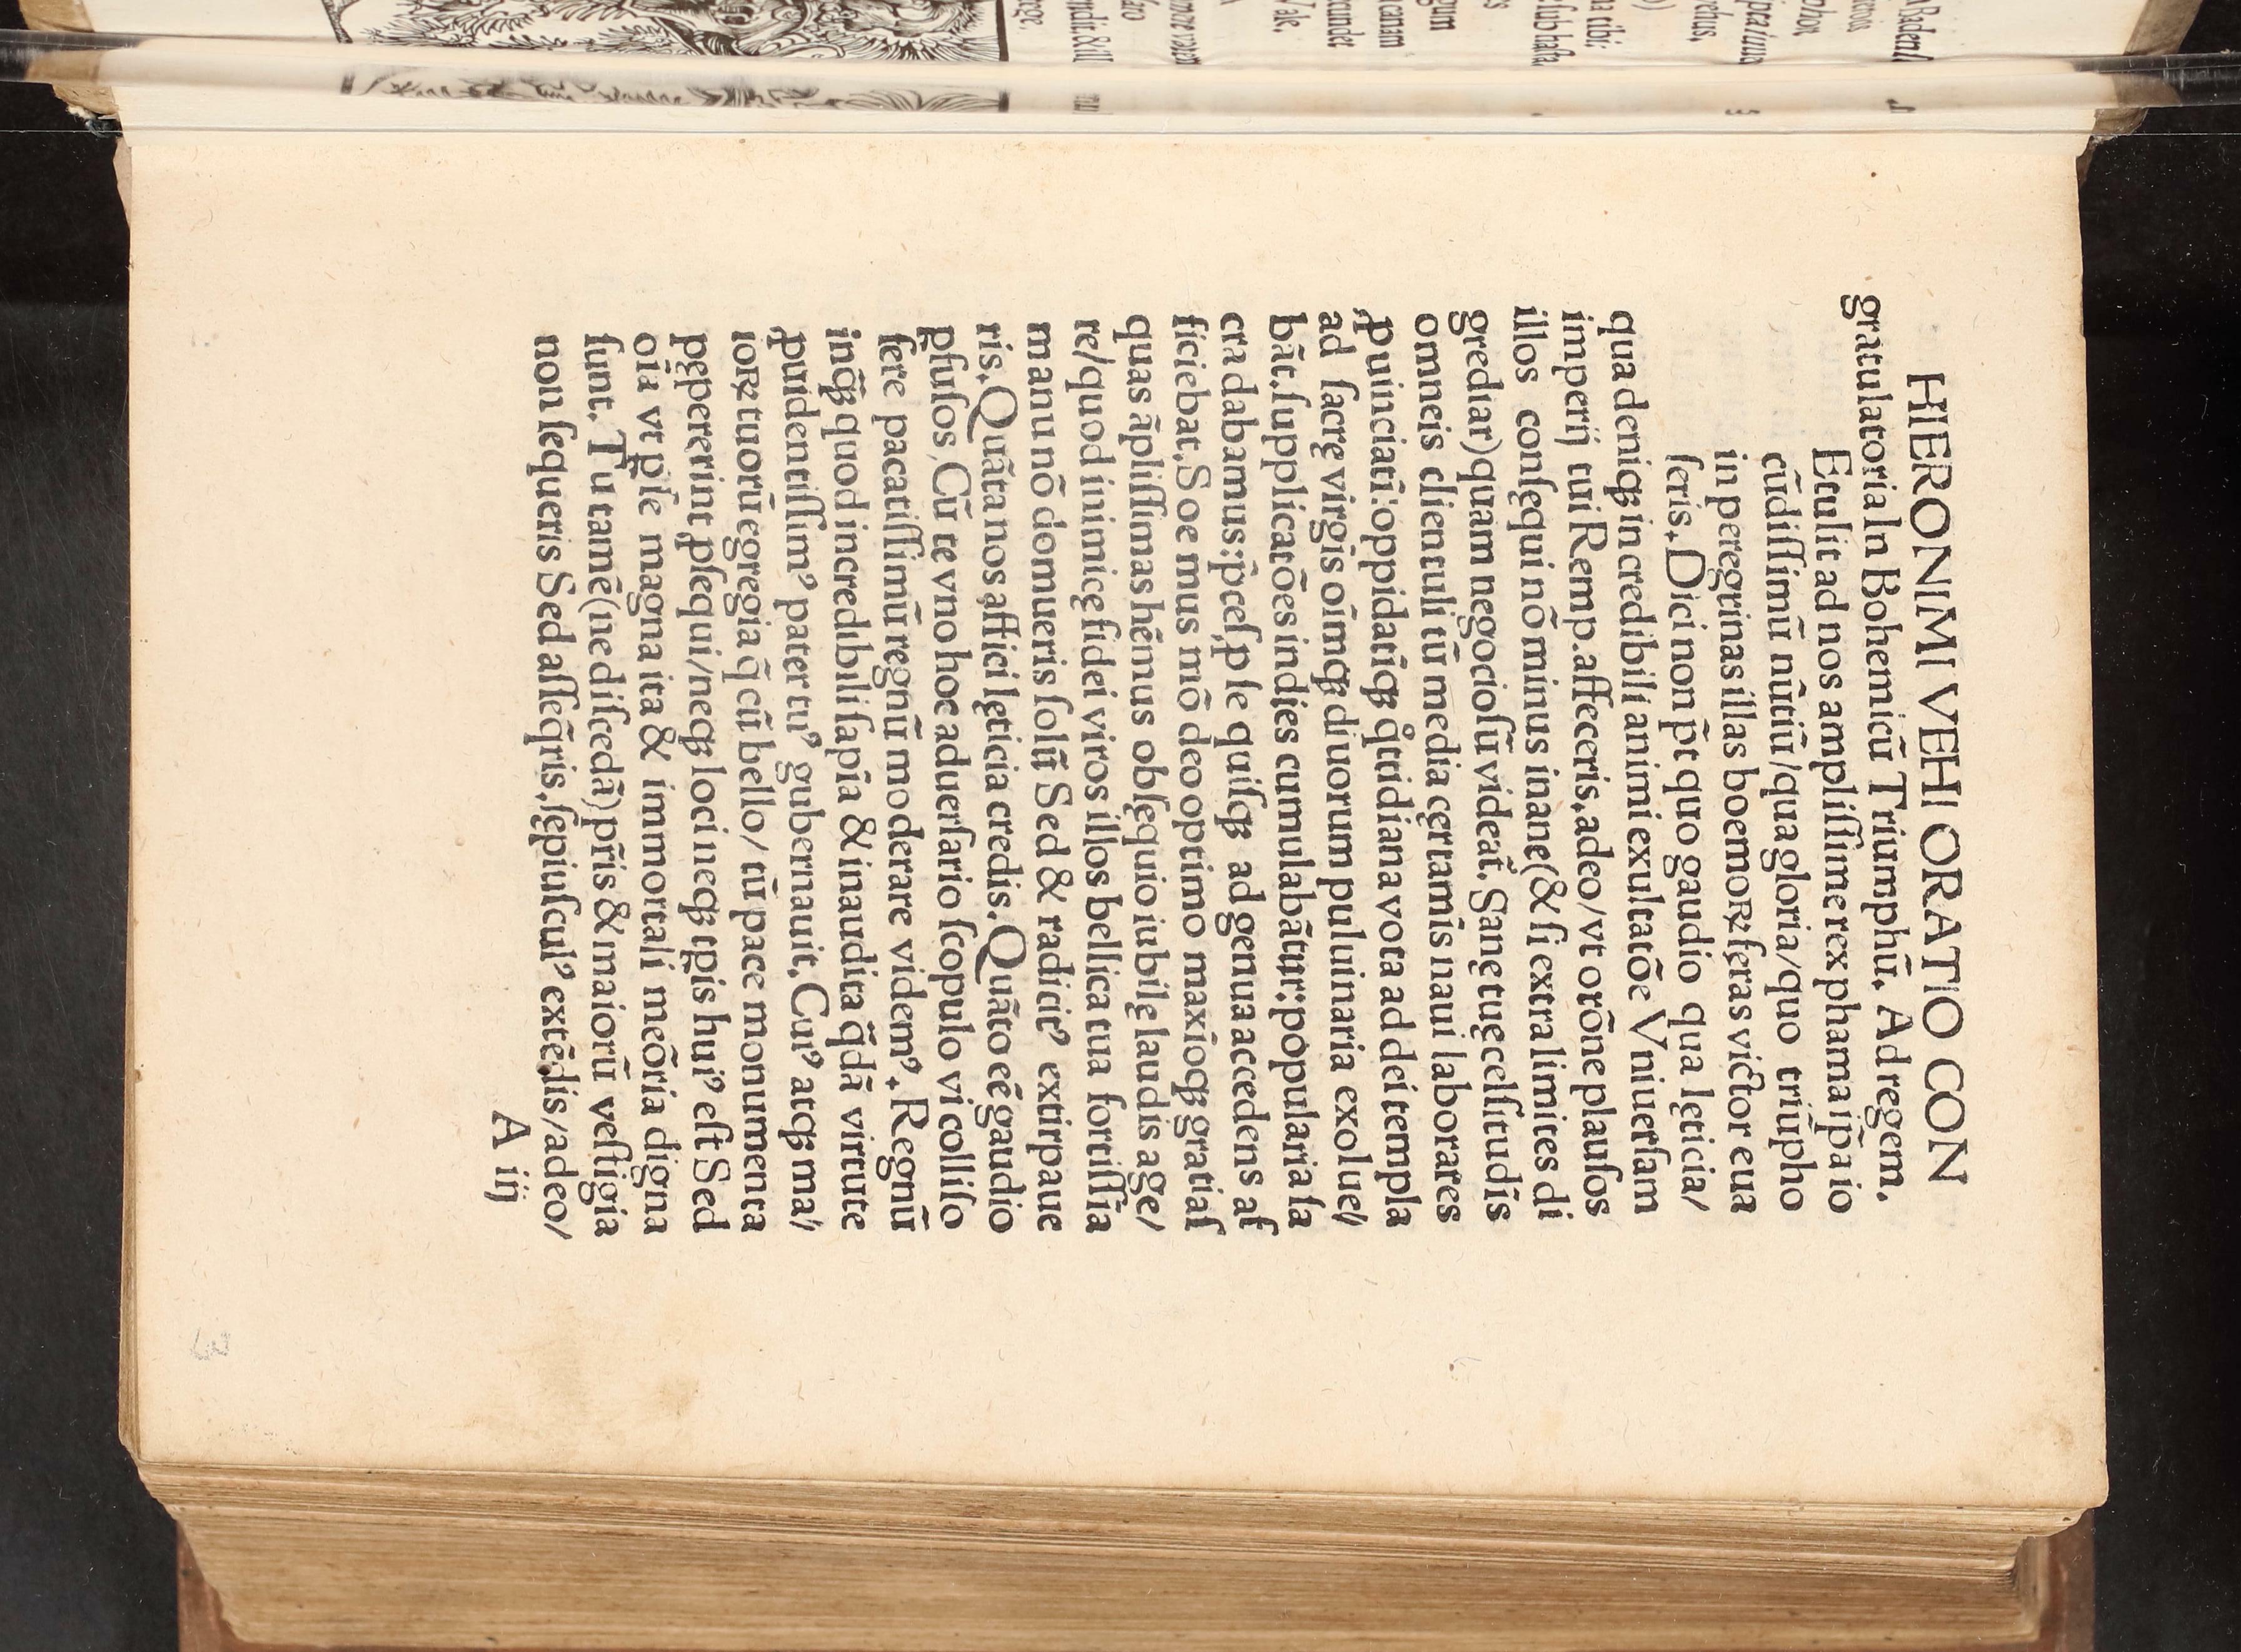 HIERONIMI VEHI ORATIO CON
gratulatoria In Bohemicũ Triumphũ. Ad regem.
Etulit ad nos amplissime rex phama ip̃a io
cũdissimũ nũtiũ/qua gloria/quo triũpho
in peregrinas illas boemoꝝ feras victor eua
seris. Dici non p̃t quo gaudio qua lęticia/
qua deniqꝫ incredibili animi exultatõe Vniuersam
imperij tui Remp. affeceris, adeo/vt otõne plausos
illos consequi nõ minus inane(& si extra limites di
grediar)quam negociosũ videat̃. Sane tuę celsitudĩs
omneis clientuli tũ media cęrtamĩs naui laborares
ꝓuinciati:oppidatĩqꝫ q̊tidiana vota ad dei templa
ad sacrę virgĩs oĩmqꝫ diuorum puluinaria exolue/
bãt. supplicatões indies cumulabãtur: popularia sa
cra dabamus: p̃ces ꝓ se quisqꝫ ad genua accedens af
ficiebat. Soemus mõ deo optimo maxĩoqꝫ gratias
quas ãplissimas hẽmus obsequio iubilę laudis age/
re/quod inimicę fidei viros illos bellica tua fortissĩa
manu nõ domueris solũ Sed & radicitꝰ extirpaue
ris. Quãta nos affici lęticia credis. Quãto eẽ gaudio
ꝑfusos. Cũ te vno hoc aduersario scopulo vi colliso
fere pacatissimũ regnũ moderare videmꝰ. Regnũ
inq̃ꝫ quod incredibili sapĩa & inaudita q̃dã virtute
ꝓuidentissimꝰ pater tuꝰ gubernauit. Cuiꝰ atqꝫ ma/
ioꝝ tuorũ egregia q̃ cũ bello/ tũ pace monumenta
pepererint ꝓsequi/neqꝫ loci neqꝫ tꝑis huiꝰ est Sed
oĩa vt ꝑ se magna ita & immortali meõria digna
sunt. Tu tamẽ(ne discedã)pr̃is & maiorũ vestigia
non sequeris Sed asseq̃ris, sępiusculꝰ extẽdis/adeo/
A iij